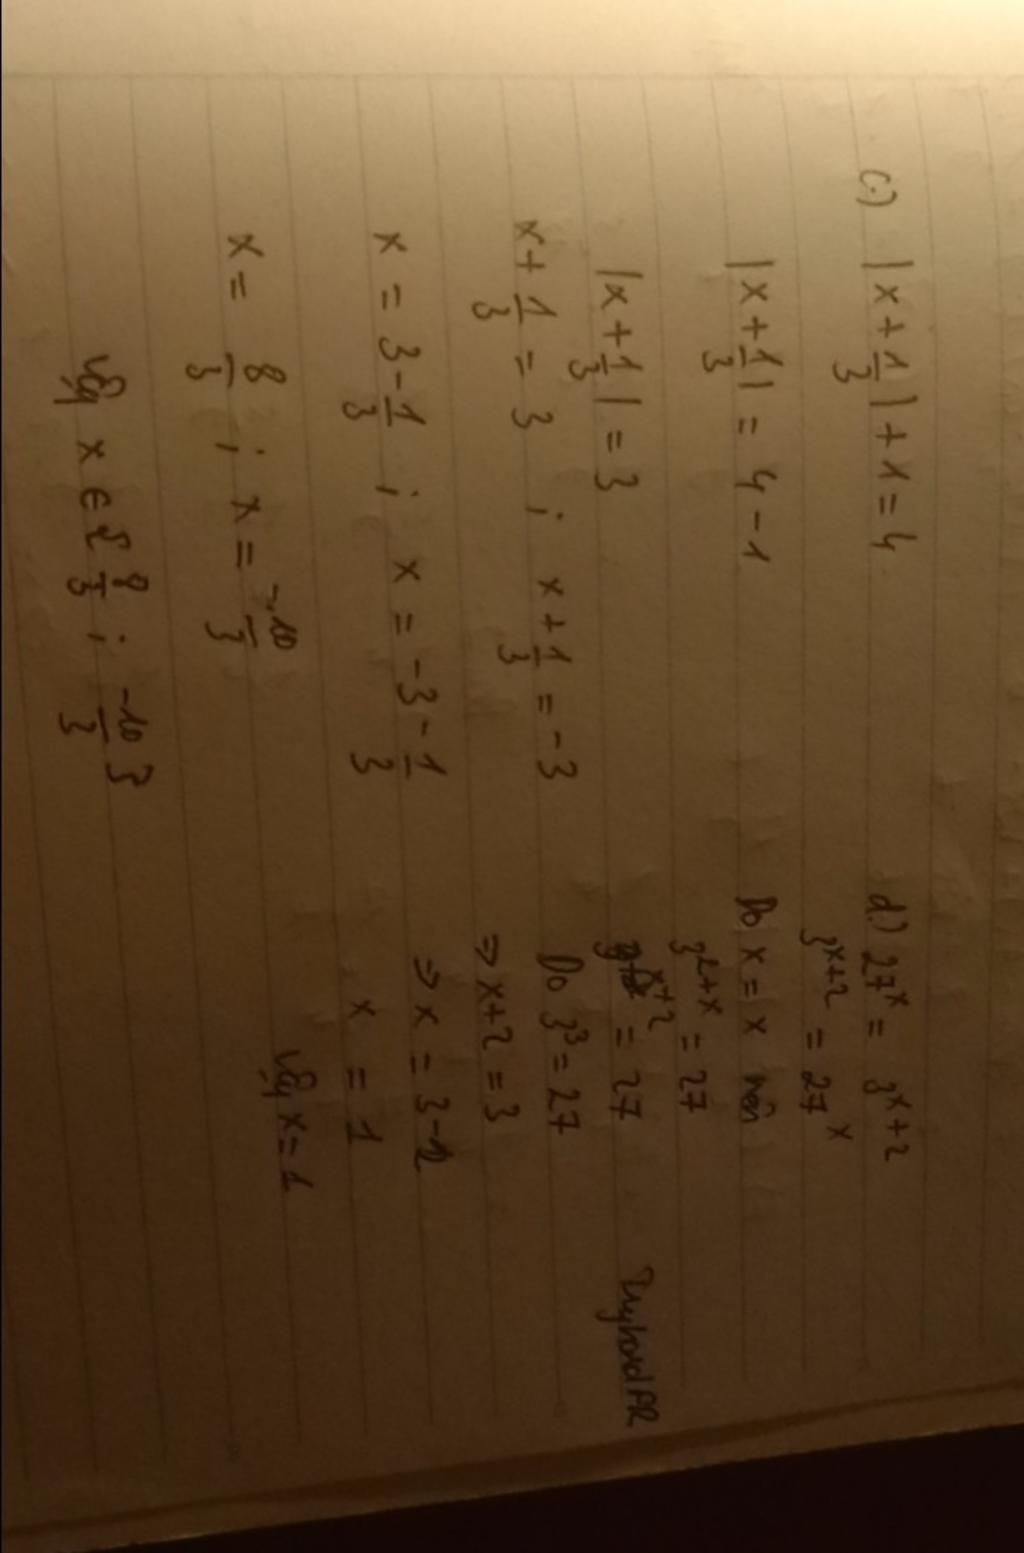 c.) |x + 1/3| + 1 = 4
|x + 1/3| = 4 - 1
|x + 1/3| = 3
x + 1/3 = 3 ; x + 1/3 = -3
x = 3 - 1/3 ; x = -3 - 1/3
x = 8/3 ; x = -10/3
Vậy x ∈ { 8/3 ; -10/3 }
d.) 27^x = 3^x+2
3^x+2 = 27^x
Do x = x nên
3^2+x = 27
x+2 = 27
Do 3^3 = 27
=> x+2 = 3
=> x = 3-2
x = 1
Vậy x = 1